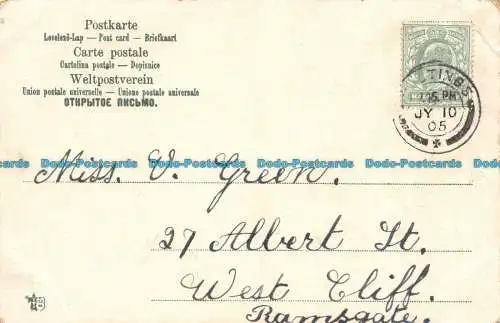 Postkarte
Levelezö-Lap — Post card — Briefkaart
Carte postale
Cartolina postale — Dopisnice
Weltpostverein
Union postale universelle — Unione postale universale
ОТКРЫТОЕ ПИСЬМО.
TINGS
PM
JY 10
05
Miss. V. Green.
27 Albert St.
West Cliff.
Ramsgate.
Dodo-Postcards Dodo-Postcards Dodo-Postcards Dodo-Postcards